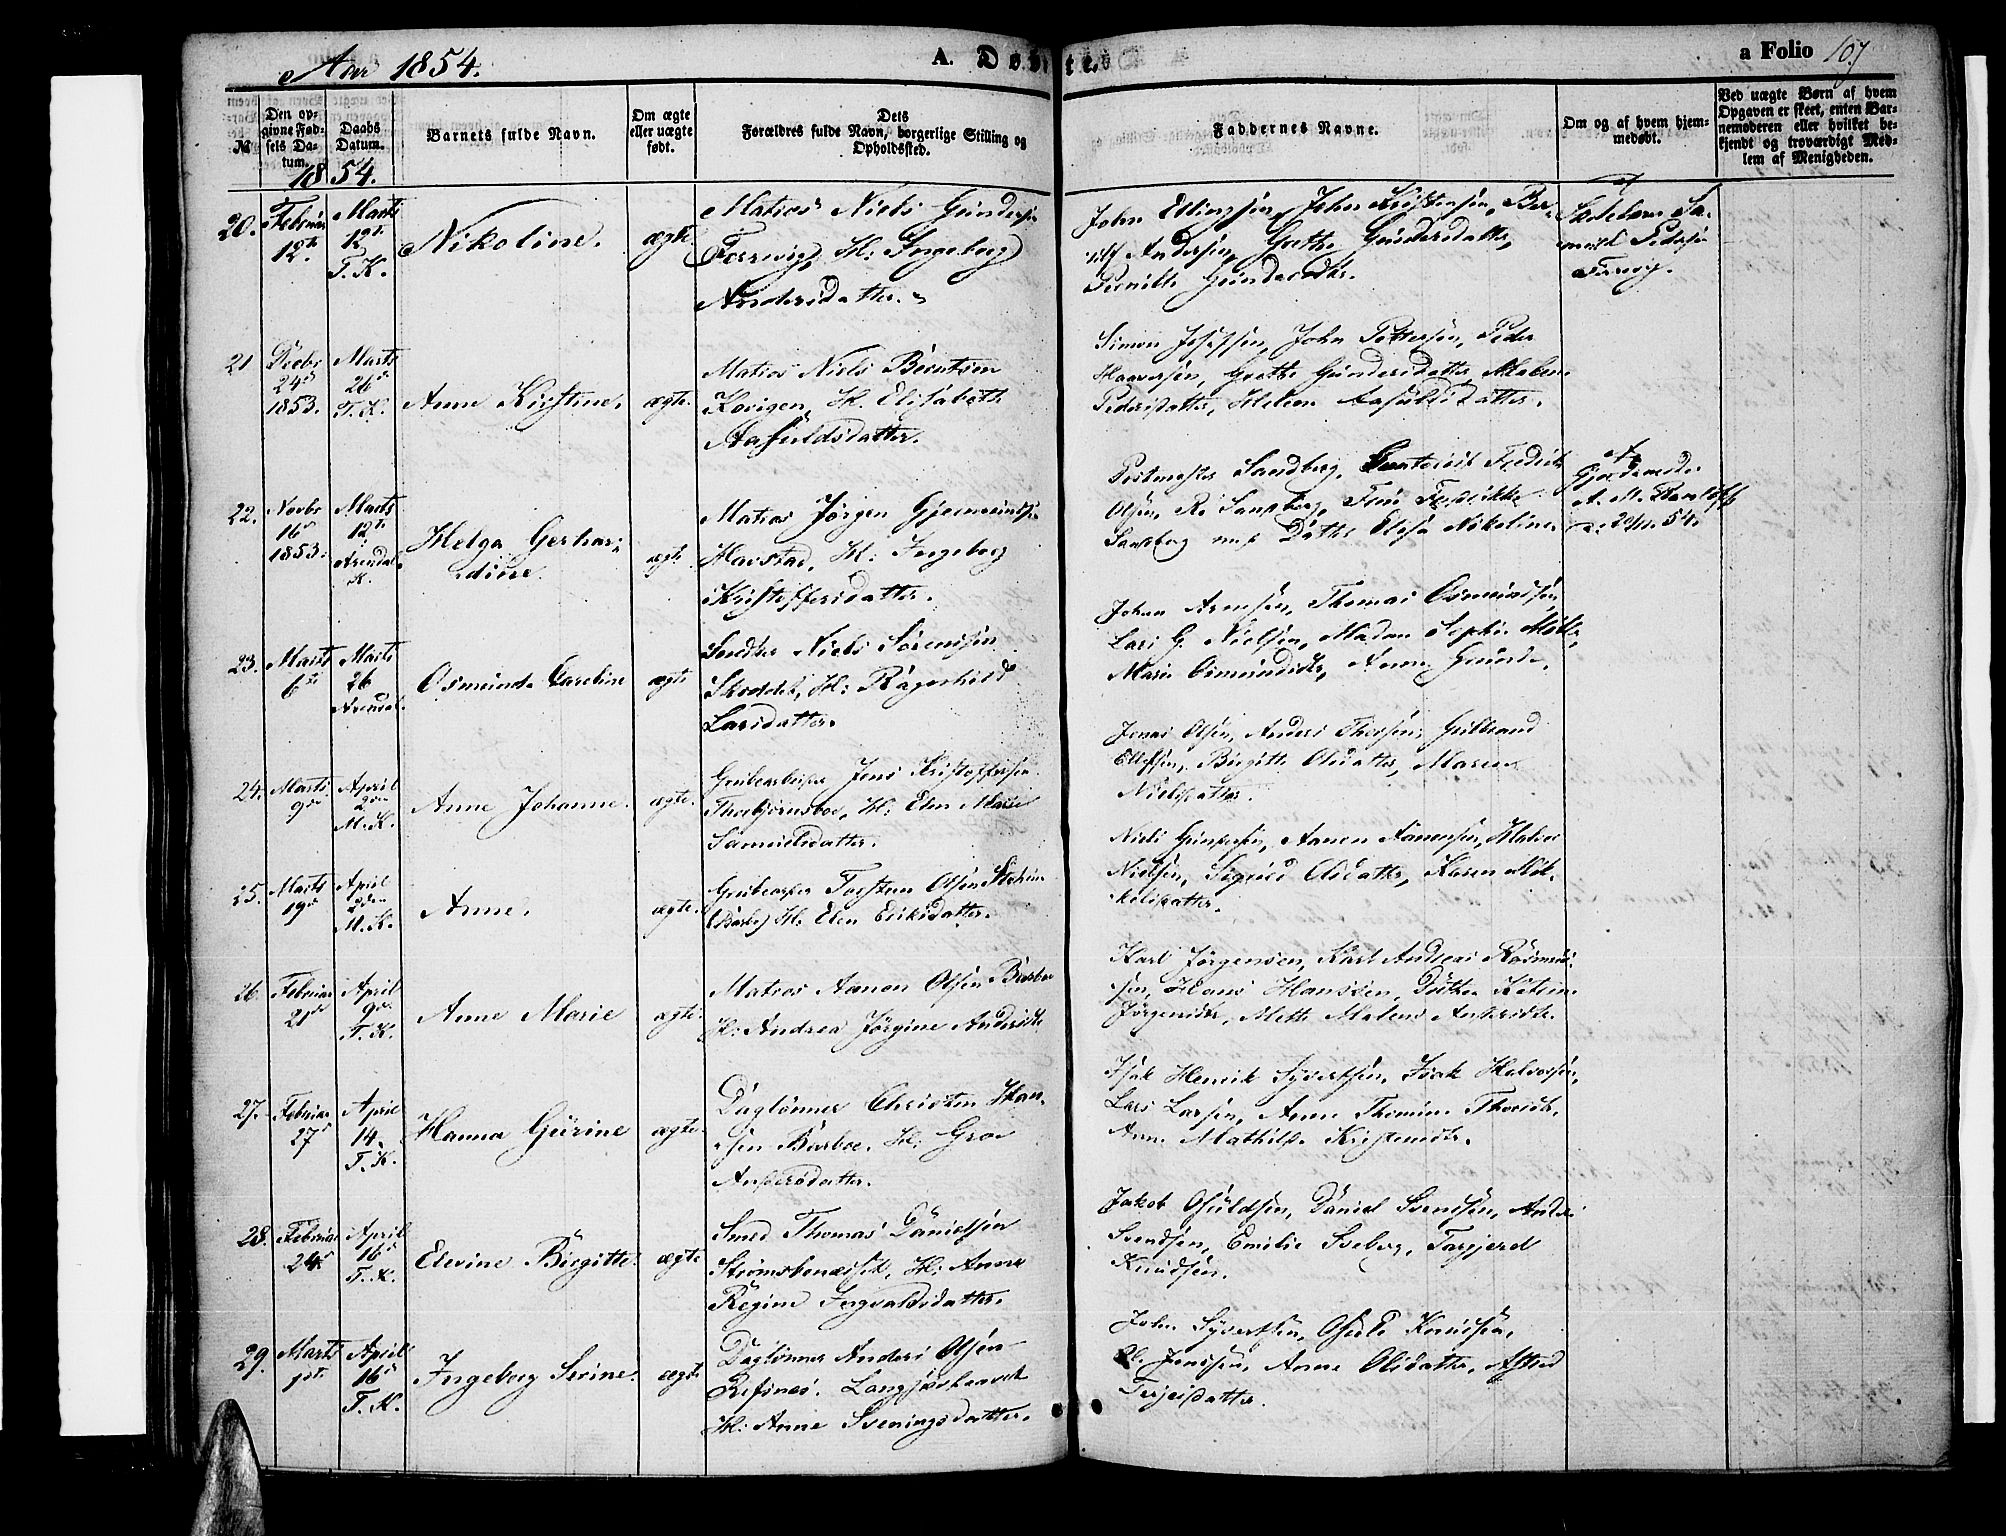 Aar 1854.
A. Døbte.
a Folio 107
№
Den opgivne Fødsels Datum.
Daabs Datum.
Barnets fulde Navn.
Om ægte eller uægte født.
Dets Forældres fulde Navn, borgerlige Stilling og Opholdssted.
Faddernes Navne.
Om og af hvem hjemmedøbt.
Ved uægte Børn af hvem Opgaven er skeet, enten Barnemoderen eller hvilket bekjendt og troværdigt Medlem af Menigheden.
1854.
20. Februar 12te
Marts 12te T. K.
Nikoline.
ægte
Matros Niels Gundersen
Færvig, H: Ingeborg
Andersdatter.
John Ellingsen, John Kristensen, Ber-
ulf Andersen, Grethe Gundersdatter,
Pernille Gundersdtr.
af Skoleholder Sa-
muel Pedersen
Færvig.
21 Decbr 24de 1853.
Marts 26de T. K.
Anne Kirstine.
ægte.
Matros Niels Berntsen
Kovigen, H. Elisabeth
Aasuldsdatter.
Simon Josefsen, John Pettersen, Peder
Haaversen, Grethe Gundersdatter, Malene
Pedersdatter, Helene Aasuldsdatter.
22. Novbr 16de 1853.
Marts 12te Arendals K.
Helga Gerhar-
dine.
ægte.
Matros Jørgen Gjermundsen
Havstad, H: Ingeborg
Kristoffersdatter.
Postmester Sandberg, Fredrik
Olsen, Sandberg, Fru Fredrikke
Sandberg med Datter Elise Nikoline
af Gjordemoder
A. M. 
54.
23. Marts 6te
Marts 26 Arendal.
Osmunda Caroline
ægte
Snedker Niels Sørensen
H: Ragnhild
Larsdatter.
Johan Arnesen, Thomas Osmundsen,
Lars G. Nielsen, Madam Sophie
Marie Osmundsdtr, Anne
24. Marts 9de
April 2den M. K.
Anne Johanne.
ægte.
Grubearbeider Jens Kristoffersen
Thorbjørnsboe, H: Elen Marie
Samuelsdatter.
Jonas Olsen, Anders Thorsen, Gulbrand
Ellefsen, Birgitte Olsdatter, Maren
Nielsdatter.
25. Marts 19de
April 2den M. K.
Anne.
ægte.
Grubearbeider Torsten Olsen
Barbo, H. Elen Eriksdatter.
Niels Gundersen, Aanon Aanonsen, Mathias
Nielsen, Sigrid Olsdatter, Karen Mik-
kelsdatter.
26. Februar 21de
April 9de T. K.
Anne Marie
ægte.
Matros Aanon Olsen Barboe
H: Andrea Jørgine Andersdtr
Karl Jørgensen, Karl Andreas Rasmus-
sen, Hans Hanssen, Dorthea Katrine
Jørgensdtr, Mette Malene Andersdtr.
27. Februar 27de
April 14. T. K.
Hanna Gurine
ægte.
Daglønner Christen Han-
sen Barboe, H: Groe
Andersdatter.
Isak Henrik Syvertsen, Isak Halvorsen,
Lars Larsen, Anne Thomine Thorsdtr.
Anne Mathilde Kristensdtr.
28. Februar 24de
April 16de T. K.
Elevine Birgitte.
ægte
Smed Thomas Danielsen
Strømsbonæsset, H: Anne
Regine Ingvaldsdatter.
Jakob Osuldsen, Daniel Svendsen, Anders
Svendsen, Emilie Sveberg, Targjerd
Knudsen.
29. Marts 1ste
April 16de T. K.
Ingeborg Serine.
ægte
Daglønner Anders Olsen
Refsnes, Langsæehavet
H: Anne Sveningsdatter.
John Syvertsen, Osuld Knudsen,
Jensen, Anne Olsdatter, Astrid
Terjesdatter.